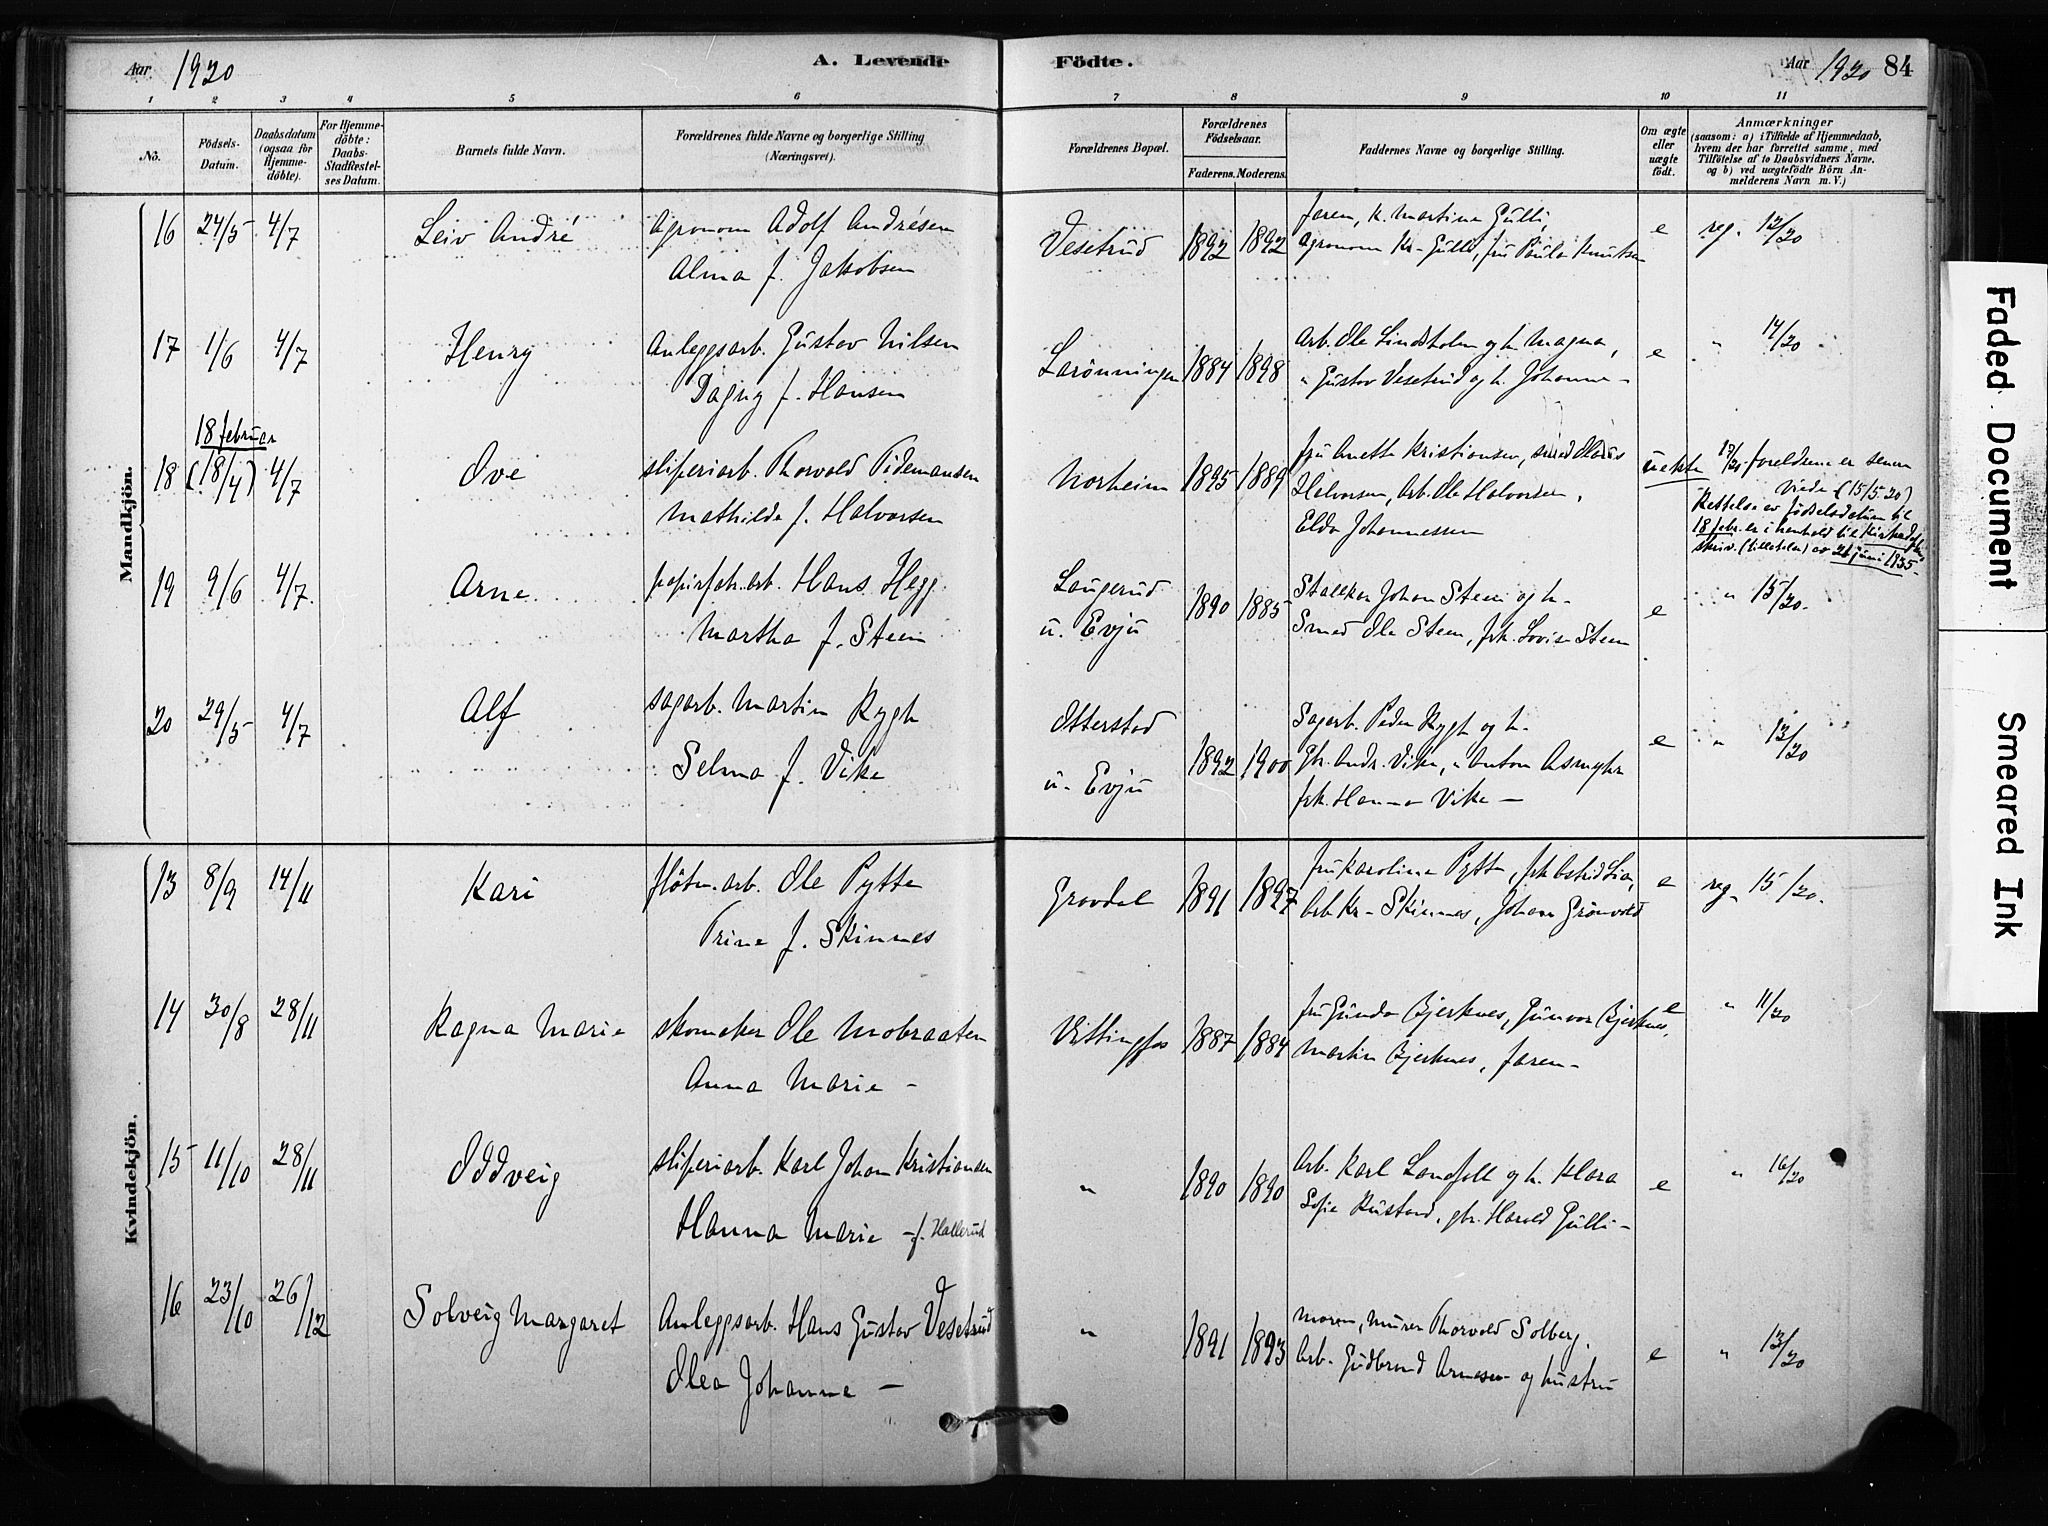 Aar 1920
A. Levende
Födte.
Aar 1920 84
1 2 3 4 5 6 7 8 9 10 11
No.
Födsels-Datum.
Daabsdatum (ogsaa for Hjemme-döbte).
For Hjemme-döbte: Daabs-Stadfestel-ses Datum.
Barnets fulde Navn.
Forældrenes fulde Navne og borgerlige Stilling (Næringsvei).
Forældrenes Bopæl.
Forældrenes Födselsaar.
Faderens. Moderens.
Faddernes Navne og borgerlige Stilling.
Om ægte eller uægte födt.
Anmærkninger
(saasom: a) i Tilfælde af Hjemmedaab, hvem der har forrettet samme, med Tilföielse af to Daabsvidners Navne, og b) ved uægtefödte Börn Anmelderens Navn m. V.)
Mandkjön.
16 24/5 4/7 Leiv André Agronom Adolf Andrésen
Alma f. Jakobsen
Vesetrud 1892 1892
faren, k. Martina Gulli,
Agronom Kr. Gulli, fru Paula Knutsen
e reg. 12/20
17 1/6 4/7 Henry Anleggsarb. Gustav Nilsen
Dagny f. Hansen
Larönningen 1884 1898
Arb. Ole Lindholm og h. Magna,
" Gustov Vesetrud og h. Johanne -
e " 14/20
18 februar
18 (18/4) 4/7 Ove sliperiarb. Thorvald Tidemansen
Mathilde f. Halvorsen
Norheim 1895 1889
fru Anette Kristiansen,
Halvorsen, Arb. Ole Halvorsen,
Elda Johannessen
uekte 17/20 foreldrene er senere
viede (15/5 20)
Rettelse av födselsdatum til
18 febr. er i henhold til
skriv. (tillatelse) av 21 juni 1935-
19 9/6 4/7 Arne papirfab.arb. Hans Hegg
Martha f. Steen
Laugerud
u. Evju
1890 1885
Johan Steen og h.
Smed Ole Steen, frk. Lovise Steen
e " 15/20
20 29/5 4/7 Alf sagarb. Martin Rygh
Selma f. Vike
Otterstad
u. Evju
1892 1900
Sagarb. Peder Rygh og h.
Gbr. Andr. Vike, " Anton Asmyhr
frk. Hanna Vike -
e " 13/20
Kvindekjön.
13 8/9 14/11 Kari flötn.arb. Ole Pytte
Trine f. Skinnes
Grovdal 1891 1897
fru Karoline Pytte, frk Astrid Lia,
Arb Kr. Skinnes, Johan Grönvold
e reg. 15/20.
14 30/8 28/11 Ragna Marie skomaker Ole Mobraaten
Anna Marie -
Vittingfos 1887 1884
fru Gunda Bjerknes, Gunvor Bjerknes,
Martin Bjerknes, faren -
e " 11/20
15 11/10 28/11 Oddveig sliperiarb. Karl Johan Kristiansen
Hanna Marie - f. Hallerud
" 1890 1890
Arb. Karl Landfall og h. Klara
Sofie Rustand, gbr. Harald Gulli -
e " 16/20
16 23/10 26/12 Solveig Margaret Anleggsarb. Hans Gustav Vesetrud
Olea Johanne -
" 1891 1893
moren, murer Thorvald Solberg,
Arb. Gudbrand Arnesen og hustru
e " 13/20
Faded Document
Smeared Ink